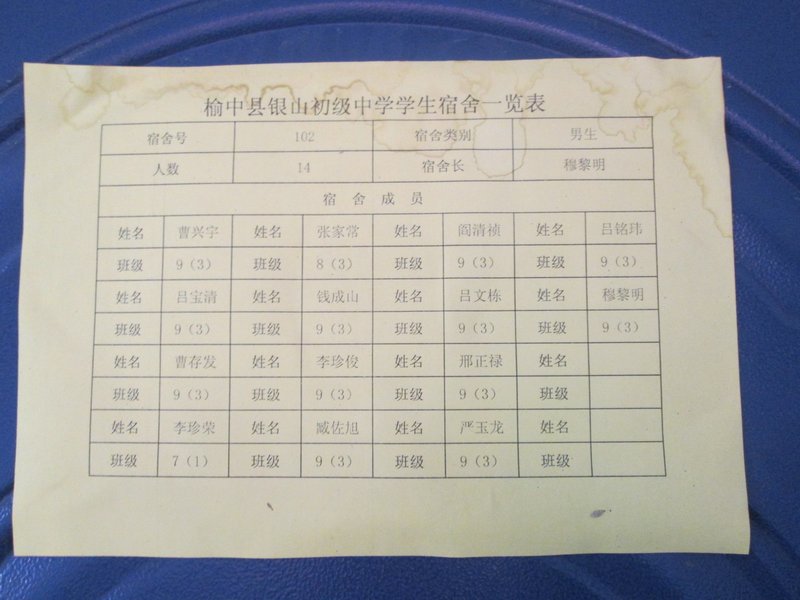 榆中县银山初级中学学生宿舍一览表
宿舍号 102 宿舍类别 男生
人数 14 宿舍长 穆黎明
宿 舍 成 员
姓名 曹兴宇 姓名 张家常 姓名 阎清祯 姓名 吕铭玮
班级 9（3） 班级 8（3） 班级 9（3） 班级 9（3）
姓名 吕宝清 姓名 钱成山 姓名 吕文栋 姓名 穆黎明
班级 9（3） 班级 9（3） 班级 9（3） 班级 9（3）
姓名 曹存发 姓名 李珍俊 姓名 邢正禄 姓名
班级 9（3） 班级 9（3） 班级 9（3） 班级
姓名 李珍荣 姓名 臧佐旭 姓名 严玉龙 姓名
班级 7（1） 班级 9（3） 班级 9（3） 班级